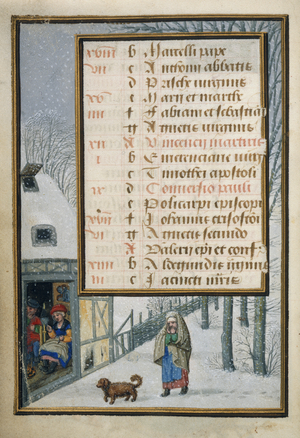 xviii b Marcelli pape
vii c Anthonii abbatis
d Prisce virginis
xv e Marii et marthe
iiii f Fabiani et sebastiani
g Agnetis virginis
xii A Vincencii martiris
i b Emerenciane
c Timothei apostoli
ix d Conversio pauli
e Policarpi episcopi
xvii f Iohannis
vi g Agnetis secundo
A Valerii epi et conf
xiiii b Aldegundis
iii c